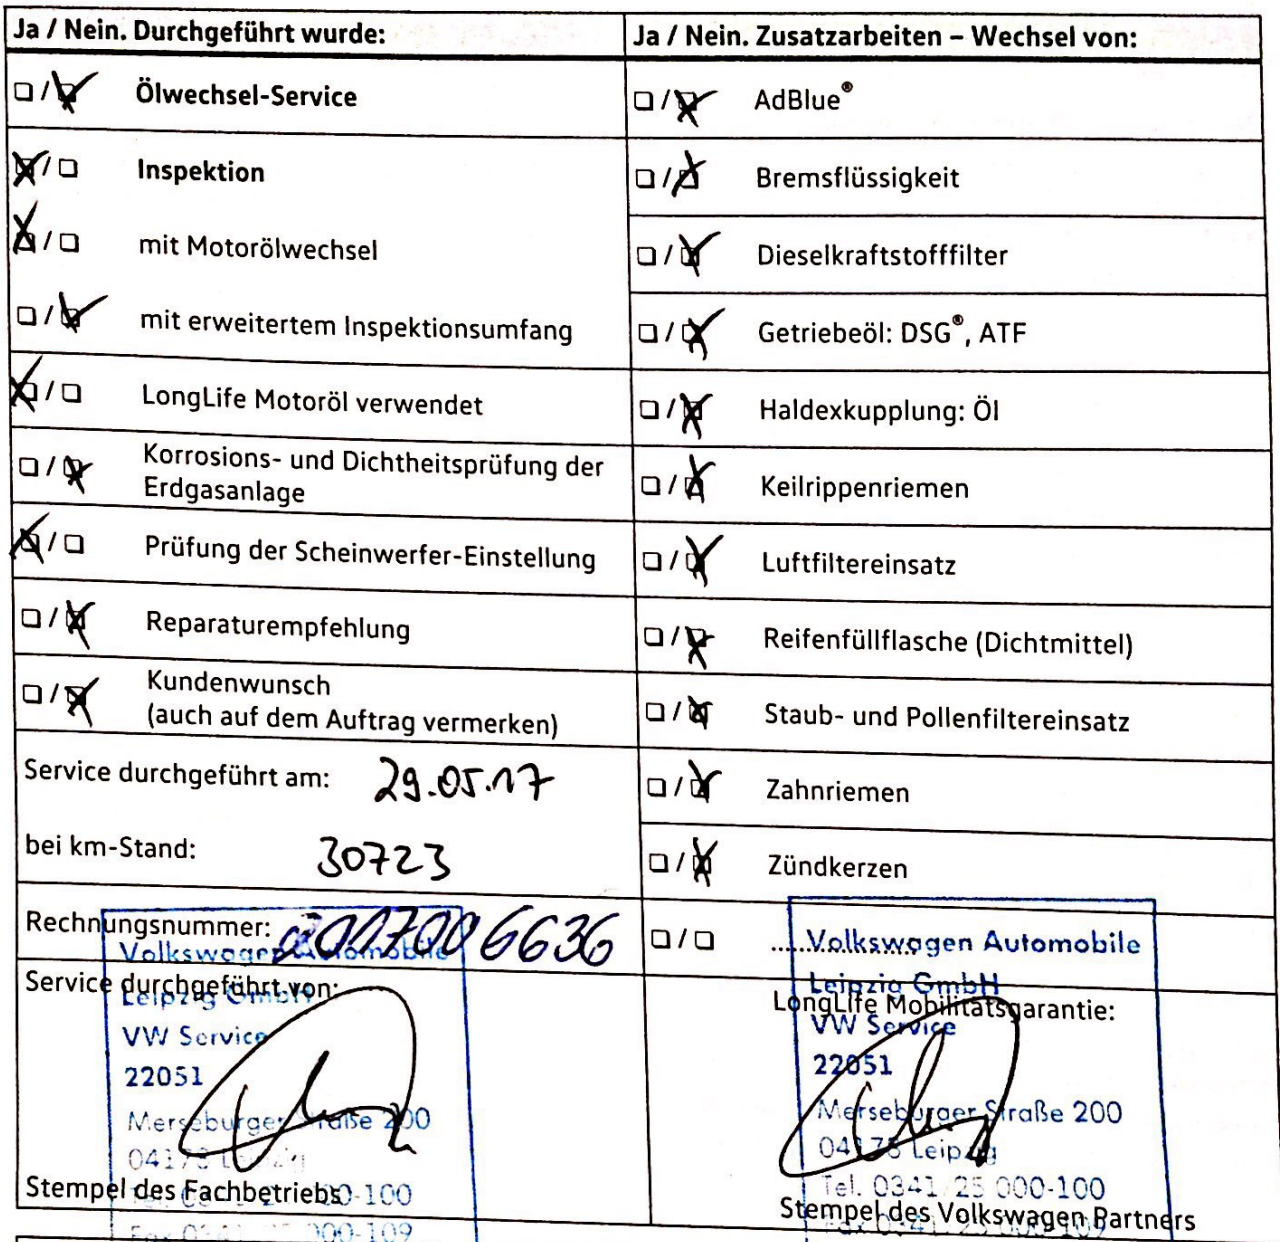 Ja / Nein. Durchgeführt wurde:
Ölwechsel-Service
Inspektion
mit Motorölwechsel
mit erweitertem Inspektionsumfang
LongLife Motoröl verwendet
Korrosions- und Dichtheitsprüfung der
Erdgasanlage
Prüfung der Scheinwerfer-Einstellung
Reparaturempfehlung
Kundenwunsch
(auch auf dem Auftrag vermerken)
Service durchgeführt am: 29.05.17
bei km-Stand: 30723
Rechnungsnummer:
Service durchgeführt von:
Volkswagen Automobile
Leipzig GmbH
VW Service
22051
Merseburger Straße 200
04178 Leipzig
Stempel des Fachbetriebs
Ja / Nein. Zusatzarbeiten – Wechsel von:
AdBlue®
Bremsflüssigkeit
Dieselkraftstofffilter
Getriebeöl: DSG®, ATF
Haldexkupplung: Öl
Keilrippenriemen
Luftfiltereinsatz
Reifenfüllflasche (Dichtmittel)
Staub- und Pollenfiltereinsatz
Zahnriemen
Zündkerzen
LongLife Mobilitätsgarantie:
Volkswagen Automobile
Leipzig GmbH
VW Service
22051
Merseburger Straße 200
04178 Leipzig
Tel. 0341/25 000-100
Fax 0341/25 000-109
Stempel des Volkswagen Partners